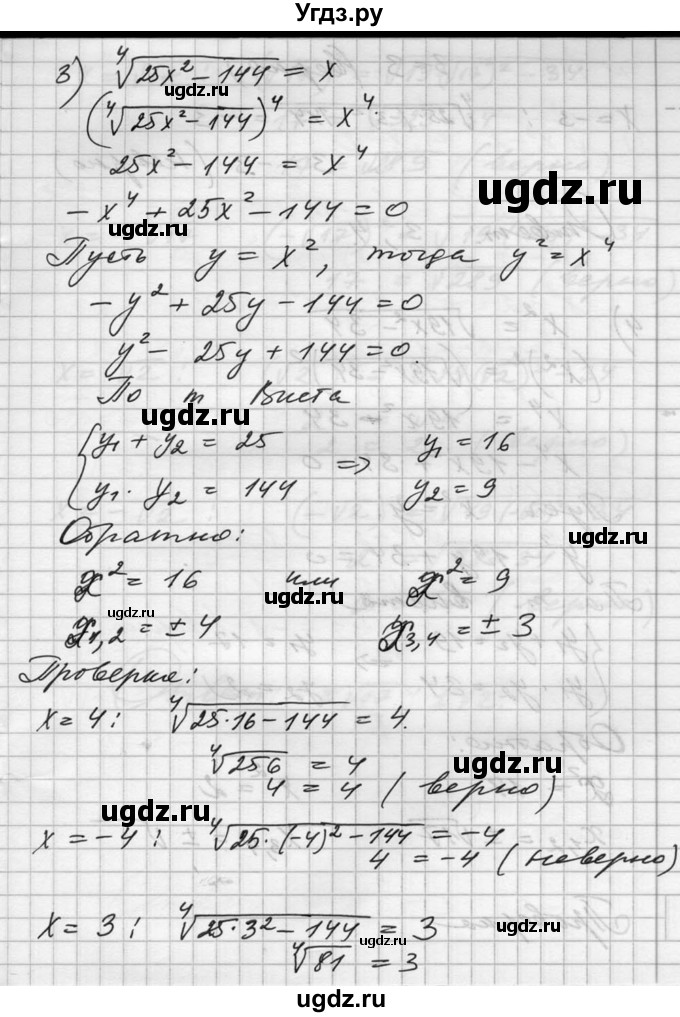 Угдз.ру
3) ⁴√(25x² − 144) = x
ugdz.ru
(⁴√(25x² − 144))⁴ = x⁴
25x² − 144 = x⁴
ugdz.ru
− x⁴ + 25x² − 144 = 0
ugdz.ru
Пусть y = x², тогда y² = x⁴
− y² + 25y − 144 = 0
y² − 25y + 144 = 0.
По т Виета
ugdz.ru
{ y₁ + y₂ = 25 => y₁ = 16
y₁ · y₂ = 144 y₂ = 9
Обратно:
ugdz.ru
x² = 16 или x² = 9
ugdz.ru ugdz.ru
x₁,₂ = ± 4 x₃,₄ = ± 3
Проверка:
x = 4 : ⁴√(25·16 − 144) = 4.
⁴√256 = 4
ugdz.ru
4 = 4 ( верно)
ugdz.ru
x = −4 : ⁴√(25·(−4)² − 144) = −4
4 = −4 ( неверно)
x = 3 : ⁴√(25·3² − 144) = 3
ugdz.ru ugdz.ru
⁴√81 = 3
ugdz.ru